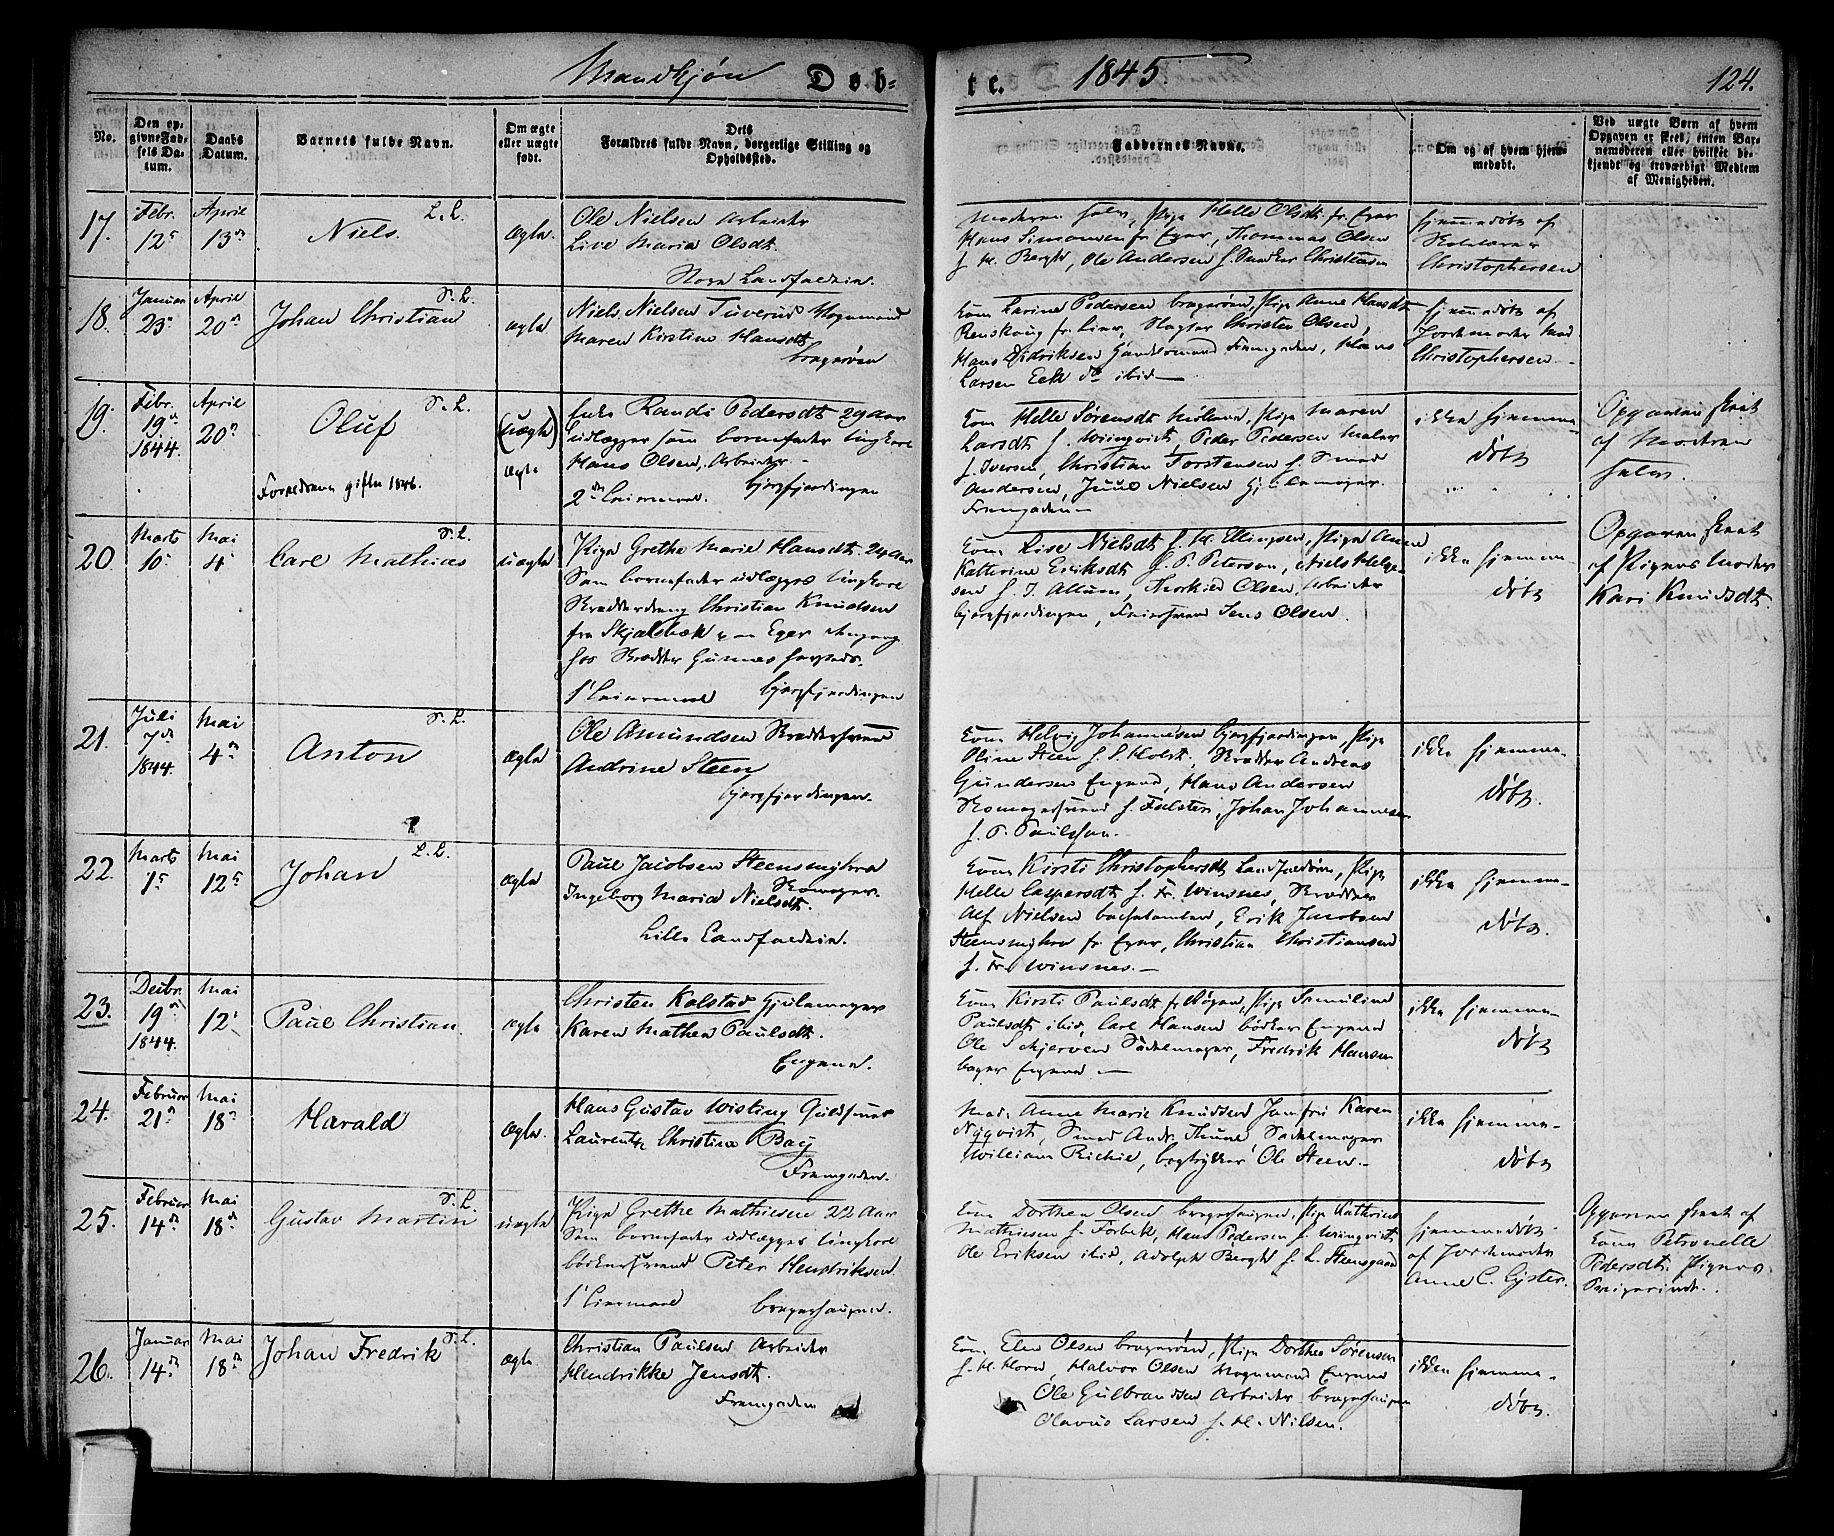 Mandkjøn Døb- te. 1845 124.
No. | Den opgivne Fødsels Datum. | Daabs Datum. | Barnets fulde Navn. | Om ægte eller uægte født. | Forældres fulde Navn, Dets borgerlige Stilling og Opholdssted. | Faddernes Navne. | Om og af hvem hjemmedøbt. | Ved uægte Børn af hvem Opgaven er skeet, enten Barnemoderen eller hvilket bekjendt og troværdigt Medlem af Menigheden.
17. Febr. 12 April 13 Niels. L.L. ægte
Ole Nielsen Arbeider
Live Maria Olsdt.
Moderen selv, Pige Helle Olsdt. fr. Eger
Hans Simonsen fr. Eger, Thommas Olsen
f. H. Bergh, Ole Andersen f. Christensen
hjemmedøbt af
Christophersen
18. Januar 23 April 20 Johan Christian S.L. ægte
Niels Nielsen Tuverud
Maren Kirstine Hansdt.
bragerøen
Kone Karine Pedersen bragerøen, Pige Anne Hansdt.
fr. Lier, Christen Olsen,
Hans Didriksen Fremgaden, Hans
Larsen Eek do ibid
hjemmedøbt af
Jordemoder Mad
Christophersen
19. Febr. 19 1844. April 20 Oluf S.L. (uægte) ægte
Forældrene gifte 1846.
Enke Randi Pedersdt. 29 Aar
udlægger som barnefader Ungkarl
Hans Olsen, Arbeider
2den Leiermaal. bjergfjerdingen
Kone Helle Sørensdt. Pige Maren
Larsdt. f. Winqvist, Peder Pedersen Maler
f. Iversen, Christian Torstensen f. Smed
Andersen, Juul Nielsen
Fremgaden
ikke hjemmedøbt
Opgaven skeet
af Moderen
selv.
20 Marts 10 Mai 4 Carl Mathias S.L. uægte
Pige Grethe Marie Hansdt. 24 Aar
Som barnefader udlægges Ungkarl
Skrædderdreng Christian Knudsen
fra Eger
hos Skrædder Gunnes
1ste Leiermaal bjergfjerdingen
Kone Lise Nielsdt. f. H. Ellingsen, Pige Anne
Katherine Eriksdt. f. P. Peterson, Niels Helgesen
f. J. Allum, Thorkild Olsen, Arbeider
bjergfjerdingen, Jens Olsen
ikke hjemmedøbt
Opgaven skeet
af Pigens Moder
Kari Knudsdt.
21. Juli 7de 1844. Mai 4 Anton S.L. ægte
Ole Amundsen
Andrine Steen
bjergfjerdingen.
Kone Helvig Johannesen bjergfjerdingen, Pige
Oline Steen f. S. Holst, Skrædder Andreas
Gundersen Engene, Hans Andersen
f. Falster, Johan Johannesen
f. P. Paulssen.
ikke hjemmedøbt.
22. Marts 1 Mai 12 Johan L.L. ægte
Paul Jacobsen Steensmyhra
Skomager.
Ingeborg Maria Nielsdt.
Kone Kirsti Christophersdt. Pige
Helle Caspersdt. f. Fr. Winsnes, Skrædder
Alf Nielsen Erik Jacobsen
Steensmyhra fr. Eger, Christian Christiansen
f. Fr. Winsnes.
ikke hjemmedøbt.
23. Decbr. 19 1844. Mai 12 Paul Christian. ægte
Christen Kolstad Gjulemager
Karen Mathea Paulsdt.
Engene.
Kone Kirsti Paulsdt. fr. Røgen, Pige Samuline
Paulsdt. ibid, Carl Hansen bødker Engene
Ole Schjerven Sadelmager, Fredrik Hansen
bager Engene
ikke hjemmedøbt
24. Februar 21 Mai 18 Harald ægte.
Hans Gustav Wisting Guldsmed
Laurentze Christine Bay
Fremgaden.
Mad. Anne Marie Knudsen Jomfru Karen
Nyqvist, Smed Andr. Thune, Sadelmager
William Richie, bogtrykker Ole Steen.
ikke hjemmedøbt
25. Februar 14 Mai 18 Gustav Martin S.L. uægte
Pige Grethe Mathiesen 22 Aar
Som barnefader udlægges Ungkarl
bødkersvend Peter Hendriksen
1ste Leiermaal bragerhaugene.
Kone Dorthea Olsen bragerhaugen, Pige Kathrine
Mathiesen f. Forbek, Hans Pedersen f. Winqvist
Ole Eriksen ibid, Adolph Bergh f. L. Steensgaard
hjemmedøbt
af Jordemoder
Anne C. Gjster.
Opgaven skeet af
Kone Petronelle
Pedersdt. Pigens
26. Januar 14 Mai 18 Johan Fredrik S.L. ægte
Christian Paulsen Arbeider
Hendrikke Jensdt.
Fremgaden
Kone Elen Olsen bragerøen, Pige Dorthea Sørensen
f. H. Horn, Halvor Olsen Engene
Ole Gulbrandsen Arbeider bragerhaugen
Olavus Larsen f. H. Nilsen.
ikke hjemmedøbt.